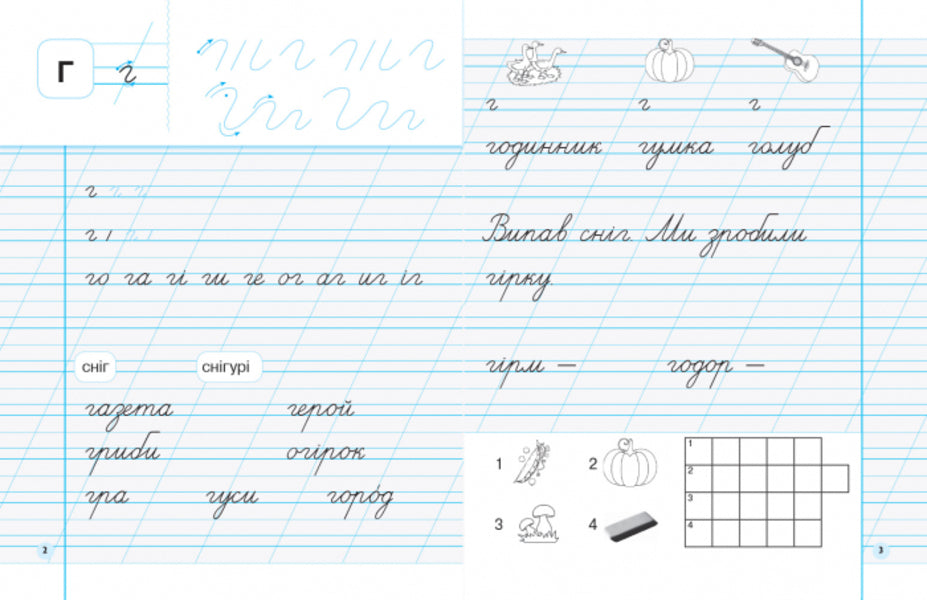 Г г
г г г
г ı г ı
го га гі ги ге ог аг иг іг
сніг снігурі
газета герой
гриби огірок
гра гуси горо́д
2
г г г
годинник гумка голуб
Випав сніг. Ми зробили
гірку.
гірм — годор —
1 2
3 4
1
2
3
4
3